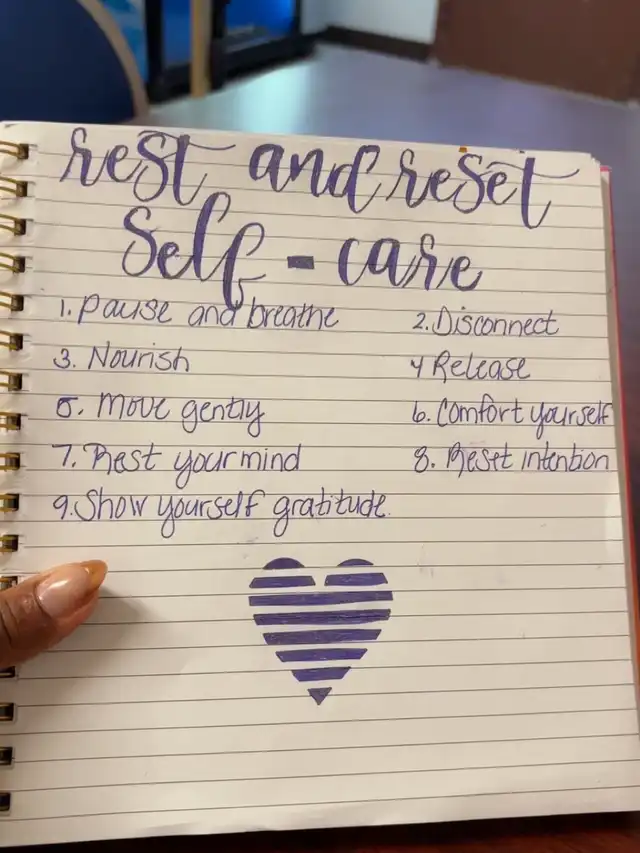 rest and reset
Self - care
1. Pause and breathe 2. Disconnect
3. Nourish 4 Release
5. Move gently 6. Comfort yourself
7. Rest your mind 8. Reset intention
9. Show yourself gratitude.